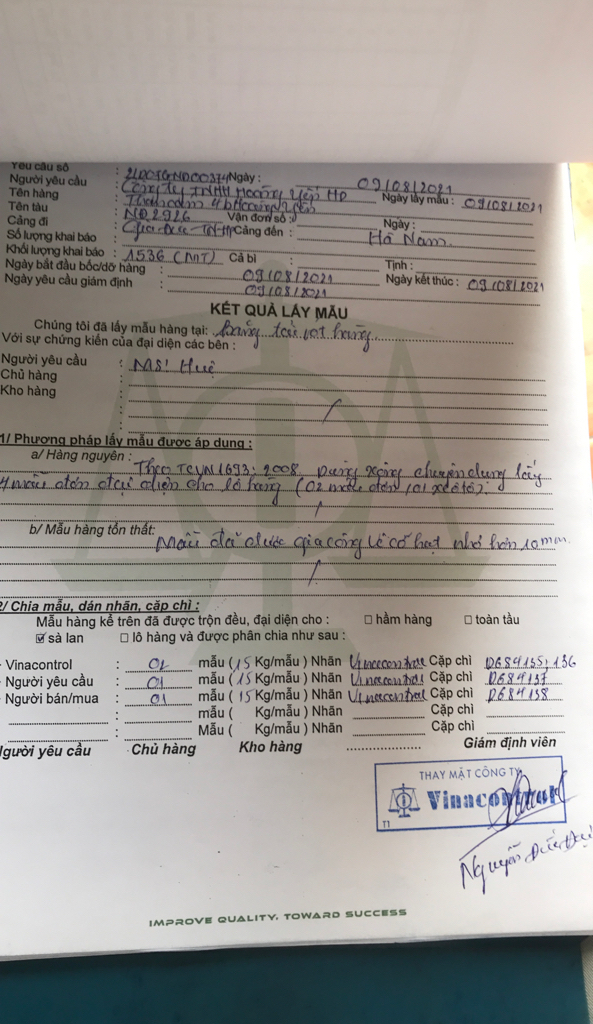 Yêu cầu số : 21D07GND00374 Ngày : 09/08/2021
Người yêu cầu : Công ty TNHH Hoàng Ngày lấy mẫu : 09/08/2021
Tên hàng : Than cám 4b
Tên tàu : NĐ 2926 Vận đơn số : Ngày :
Cảng đi : Cảng đến : Hà Nam
Số lượng khai báo :
Khối lượng khai báo : 1536 (MT) Cả bì : Tịnh :
Ngày bắt đầu bốc/dỡ hàng : 09/08/2021 Ngày kết thúc : 09/08/2021
Ngày yêu cầu giám định : 09/08/2021
KẾT QUẢ LẤY MẪU
Chúng tôi đã lấy mẫu hàng tại: Băng tải rót hàng
Với sự chứng kiến của đại diện các bên :
Người yêu cầu : Ms: Huệ
Chủ hàng :
Kho hàng :
1/ Phương pháp lấy mẫu được áp dụng :
a/ Hàng nguyên : Theo TCVN 1693: 2008 Dùng xẻng chuyên dụng lấy
4 mẫu đơn đại diện cho lô hàng (02 mẫu đơn /01 xe ôtô).
b/ Mẫu hàng tổn thất: Mẫu đã được gia công về cỡ hạt nhỏ hơn 10mm.
2/ Chia mẫu, dán nhãn, cặp chì :
Mẫu hàng kể trên đã được trộn đều, đại diện cho : ☐ hầm hàng ☐ toàn tầu
☑ sà lan ☐ lô hàng và được phân chia như sau :
- Vinacontrol : 02 mẫu (15 Kg/mẫu ) Nhãn Vinacontrol Cặp chì D684135; 136
- Người yêu cầu : 01 mẫu (15 Kg/mẫu ) Nhãn Vinacontrol Cặp chì D684137
- Người bán/mua : 01 mẫu (15 Kg/mẫu ) Nhãn Vinacontrol Cặp chì D684138
: mẫu ( Kg/mẫu ) Nhãn Cặp chì
: Mẫu ( Kg/mẫu ) Nhãn Cặp chì
Người yêu cầu Chủ hàng Kho hàng Giám định viên
THAY MẶT CÔNG TY
Vinacontrol
T1
Nguyễn Đức
IMPROVE QUALITY, TOWARD SUCCESS